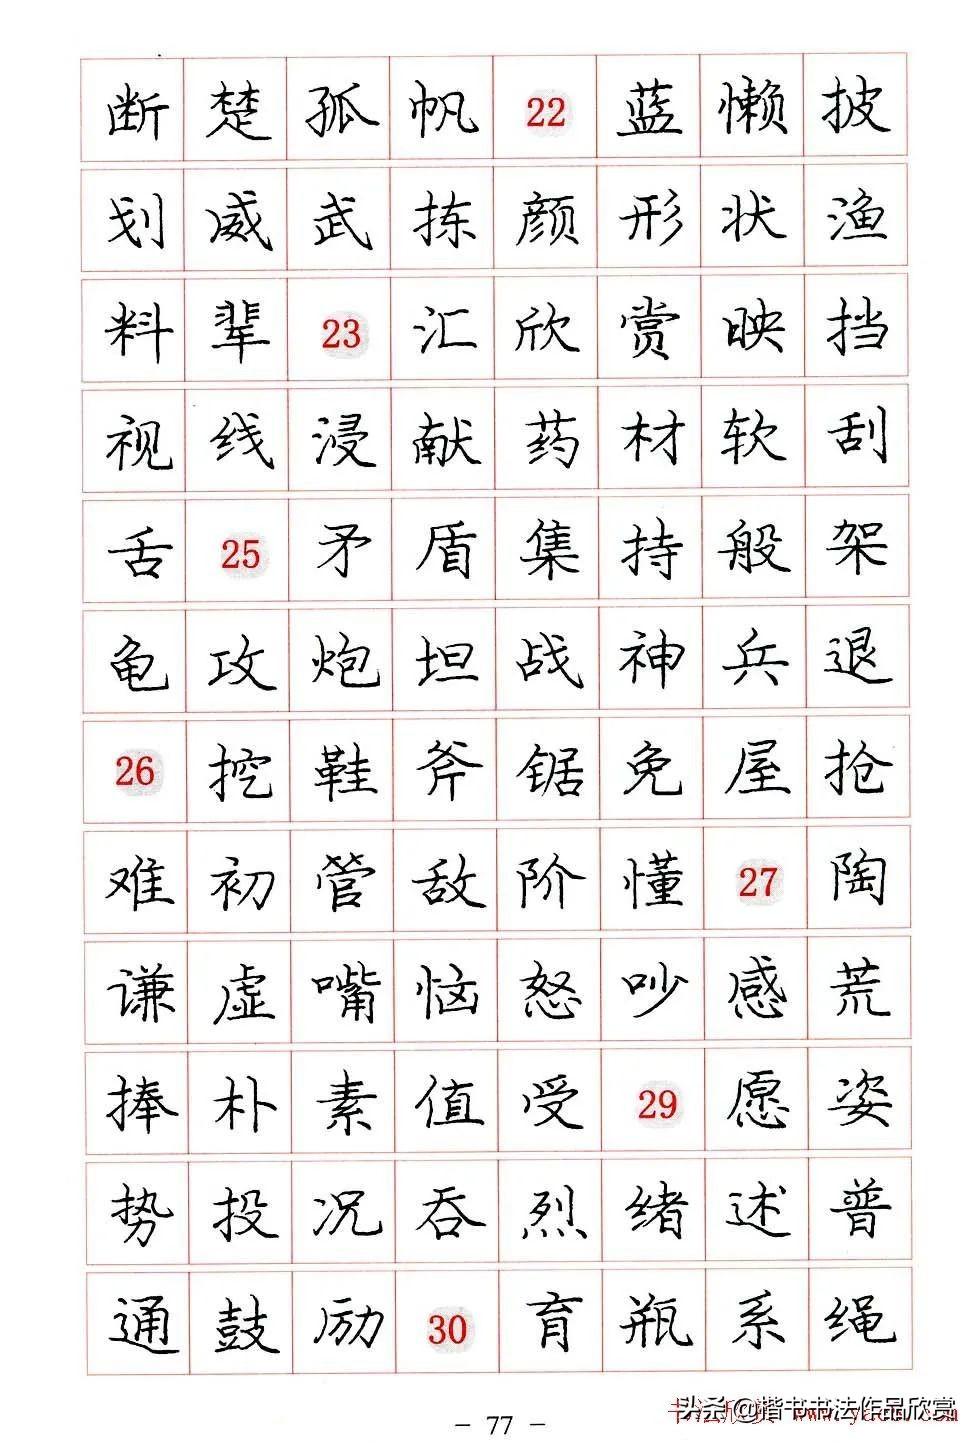 断 楚 孤 帆 22 蓝 懒 披
划 威 武 拣 颜 形 状 渔
料 辈 23 汇 欣 赏 映 挡
视 线 浸 献 药 材 软 刮
舌 25 矛 盾 集 持 般 架
龟 攻 炮 坦 战 神 兵 退
26 挖 鞋 斧 锯 免 屋 抢
难 初 管 敌 阶 懂 27 陶
谦 虚 嘴 恼 怒 吵 感 荒
捧 朴 素 值 受 29 愿 姿
势 投 况 吞 烈 绪 述 普
通 鼓 励 30 育 瓶 系 绳
- 77 -
头条@楷书书法作品欣赏